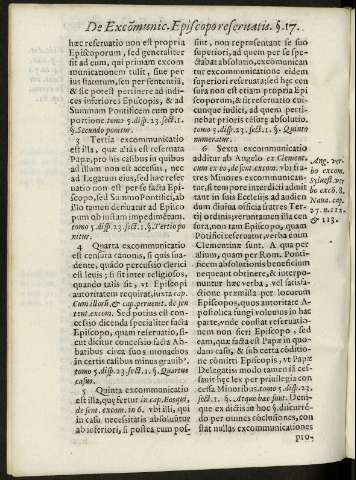 De Excõmunic. Episcopo reseruatis. §. 17.
hæc reseruatio non est propria
Episcoporum, sed generaliter
fit ad eum, qui primam excom
municationem tulit, siue per
ius statutum, seu per sententiã,
& sic potest pertinere ad iudi-
ces inferiores Episcopis, & ad
Summum Pontificem cum pro
portione. tomo 5. disp. 23. sect. 1.
§. Secundo ponitur.
3 Tertia excommunicatio
est illa, quæ aliàs est reseruata
Papæ, pro his casibus in quibus
ad illum non est accessus, nec
ad Legatum eius, sed hæc reser
uatio non est per se facta Epis-
copo, sed Summo Pontifici, ab
illo tamen deriuatur ad Episco
pum ob iustam impedimẽtum.
tomo 5. disp. 23. sect. 1. §. Tertio po
nitur.
4 Quarta excommunicatio
est censura canonis, si quis sua-
dente, quãdo percussio clerici
est leuis; si sit inter religiosos,
quando talis sit, vt Episcopi
autoritatem requirat, iuxta cap.
Cum illorũ, & cap. peruenit. de sen
tent. excom. Sed potius est con-
cessio dicenda specialiter facta
Episcopo, quam reseruatio, si-
cut dicitur concessio facta Ab-
batibus circa suos monachos
in certis casibus minus grauib⁹,
tomo 5. disp. 23. sect. 1. §. Quartus
casus.
5 Quinta excommunicatio
est illa, quę fertur in cap. Eos qui,
de sent. excom. in 6. vbi illi, qui
in casu necessitatis absoluuntur
ab inferiori, si postea cum pos-
sint, non repræsentant se suo
superiori, ad quem per se spe-
ctabat absolutio, excõmunican
tur excommunicatione eidem
superiori reseruata; sed hæc cen
sura non est etiam propria Epi
scoporum, & sit reseruatio cui-
cunque iudici, ad quem perti-
nebat prioris césuræ absolutio.
tomo 5. disp. 23. sect. 1. §. Quinto
numeratur.
6 Sexta excommunicatio
additur ab Angelo ex Clement.
cum ex eo, de sent. excom. vbi fra-
tres Minores excommunican-
tur, si tempore interdicti admit
tant in suis Ecclesiis ad audien
dum diuina officia fratres Ter-
tij ordinis; veruntamen illa cen
sura, non tam Episcopo, quam
Pontifici reseruatur, verba enim
Clementinæ sunt. A qua per
alium, quam per Rom. Ponti-
ficem absolutionis beneficium
nequeant obtinere, & interpo-
nuntur hæc verba, vel satisfa-
ctione præmissa per locorum
Episcopos, quos autoritate A-
postolica fungi volumus in hac
parte, vnde constat reseruatio-
nem non fieri Episcopo, sed
eam, quæ facta est Papæ in quo-
dam casu, & sub certa cõditio-
ne cõmitti Episcopis, vt Papæ
Delegatis: modo tamen iã ces-
sauit hęc lex per priuilegia con
cessa Minoribus. tomo 5. disp. 23.
sect. 1. §. Atque hæc sunt. Deni-
que ex dictis in hoc §. discurrẽ-
do per omnes conclusiones, con
stat nullas excommunicationes
pro-
Ang. ver-
bo excom.
Syluest. ver
bo excõ. 8.
Naua. cap.
27. n. 112.
& 113.